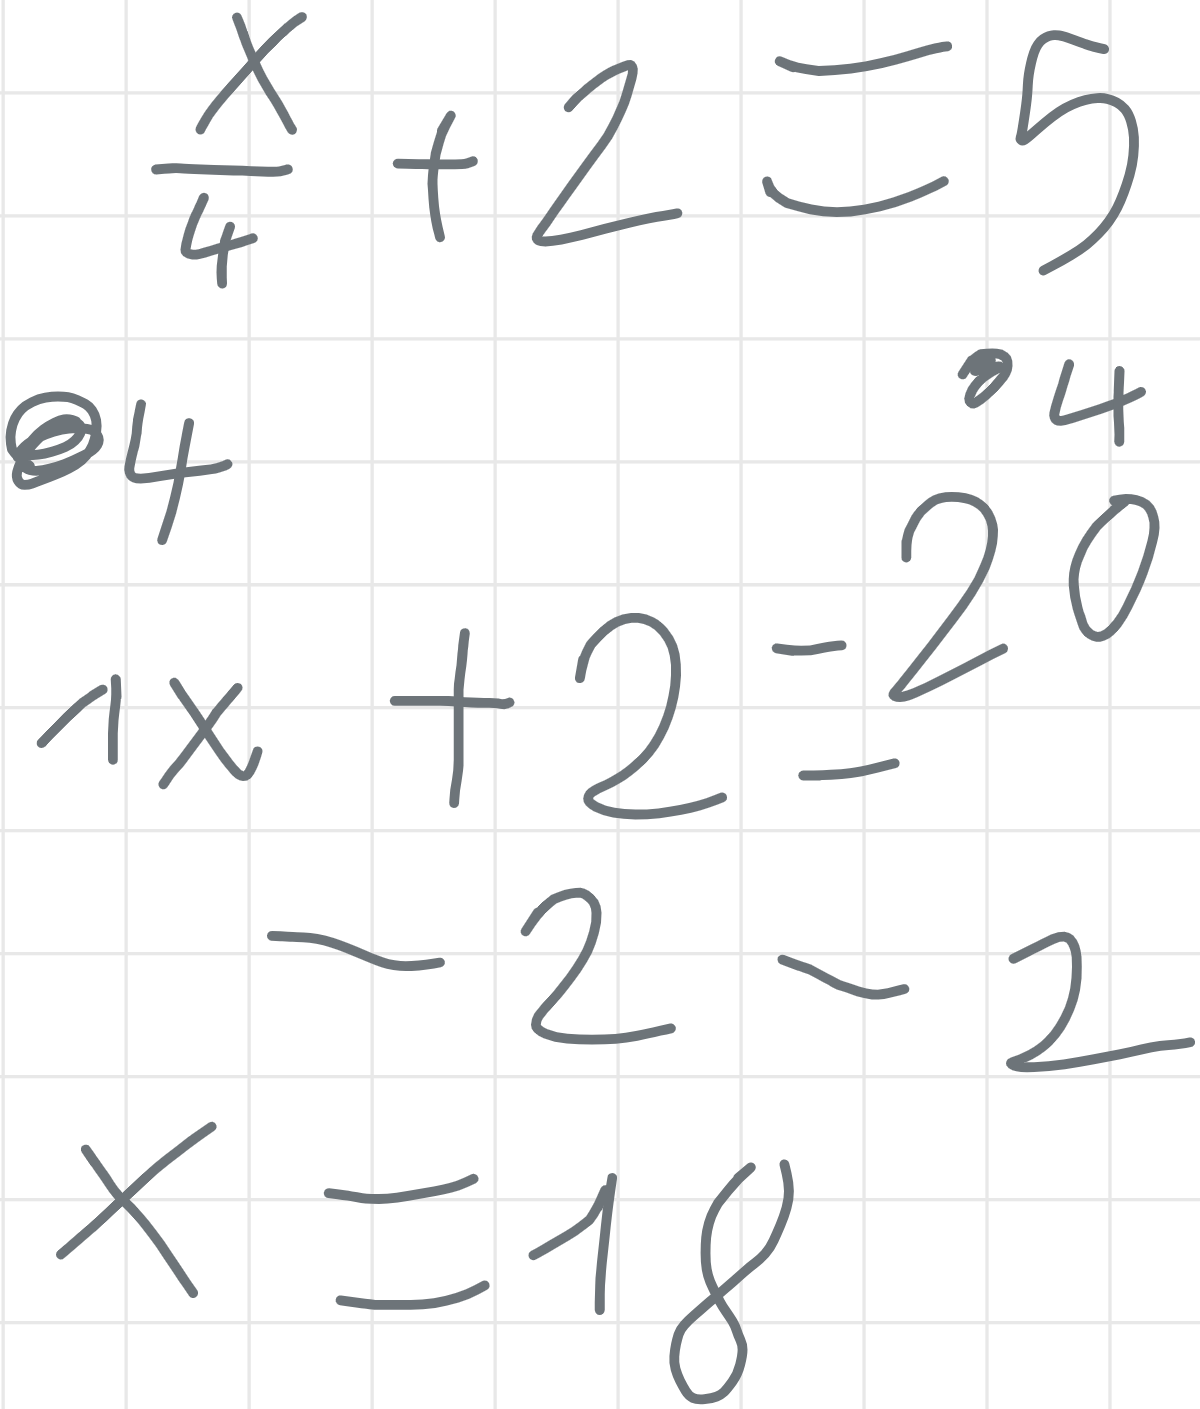 x/4 + 2 = 5
•4 •4
1x + 2 = 20
- 2 - 2
x = 18